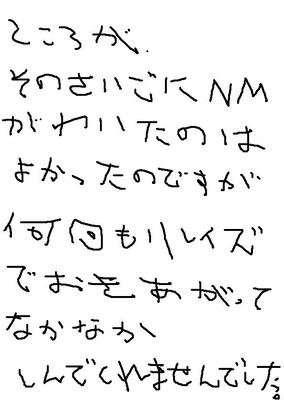 ところが、
そのさいごにNM
がわいたのは
よかったのですが
何回もリレイズ
でおきあがって
なかなか
しんでくれませんでした。